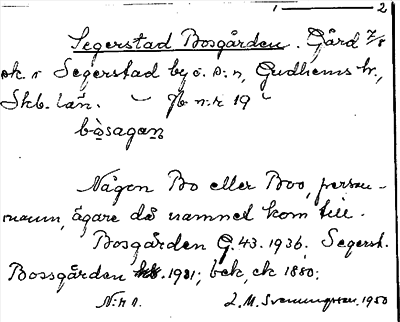 1 — 2
Segerstad Bosgården. Gård 7/8
ek. i Segerstad by o. s:n, Gudhems h.,
Skb. län. gb n:r 19
bo̱sagan̲
Någon Bo eller Boo, person-
namn, ägare då namnet kom till.
Bosgården G. 43. 1936. Segerst.
Bossgården 1931; bek, ek 1880;
N:r 1. L. M. Svenungsson. 1950